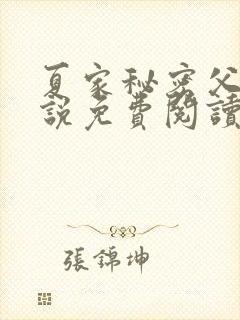 夏家秘密父
説免費閱讀
張錦坤